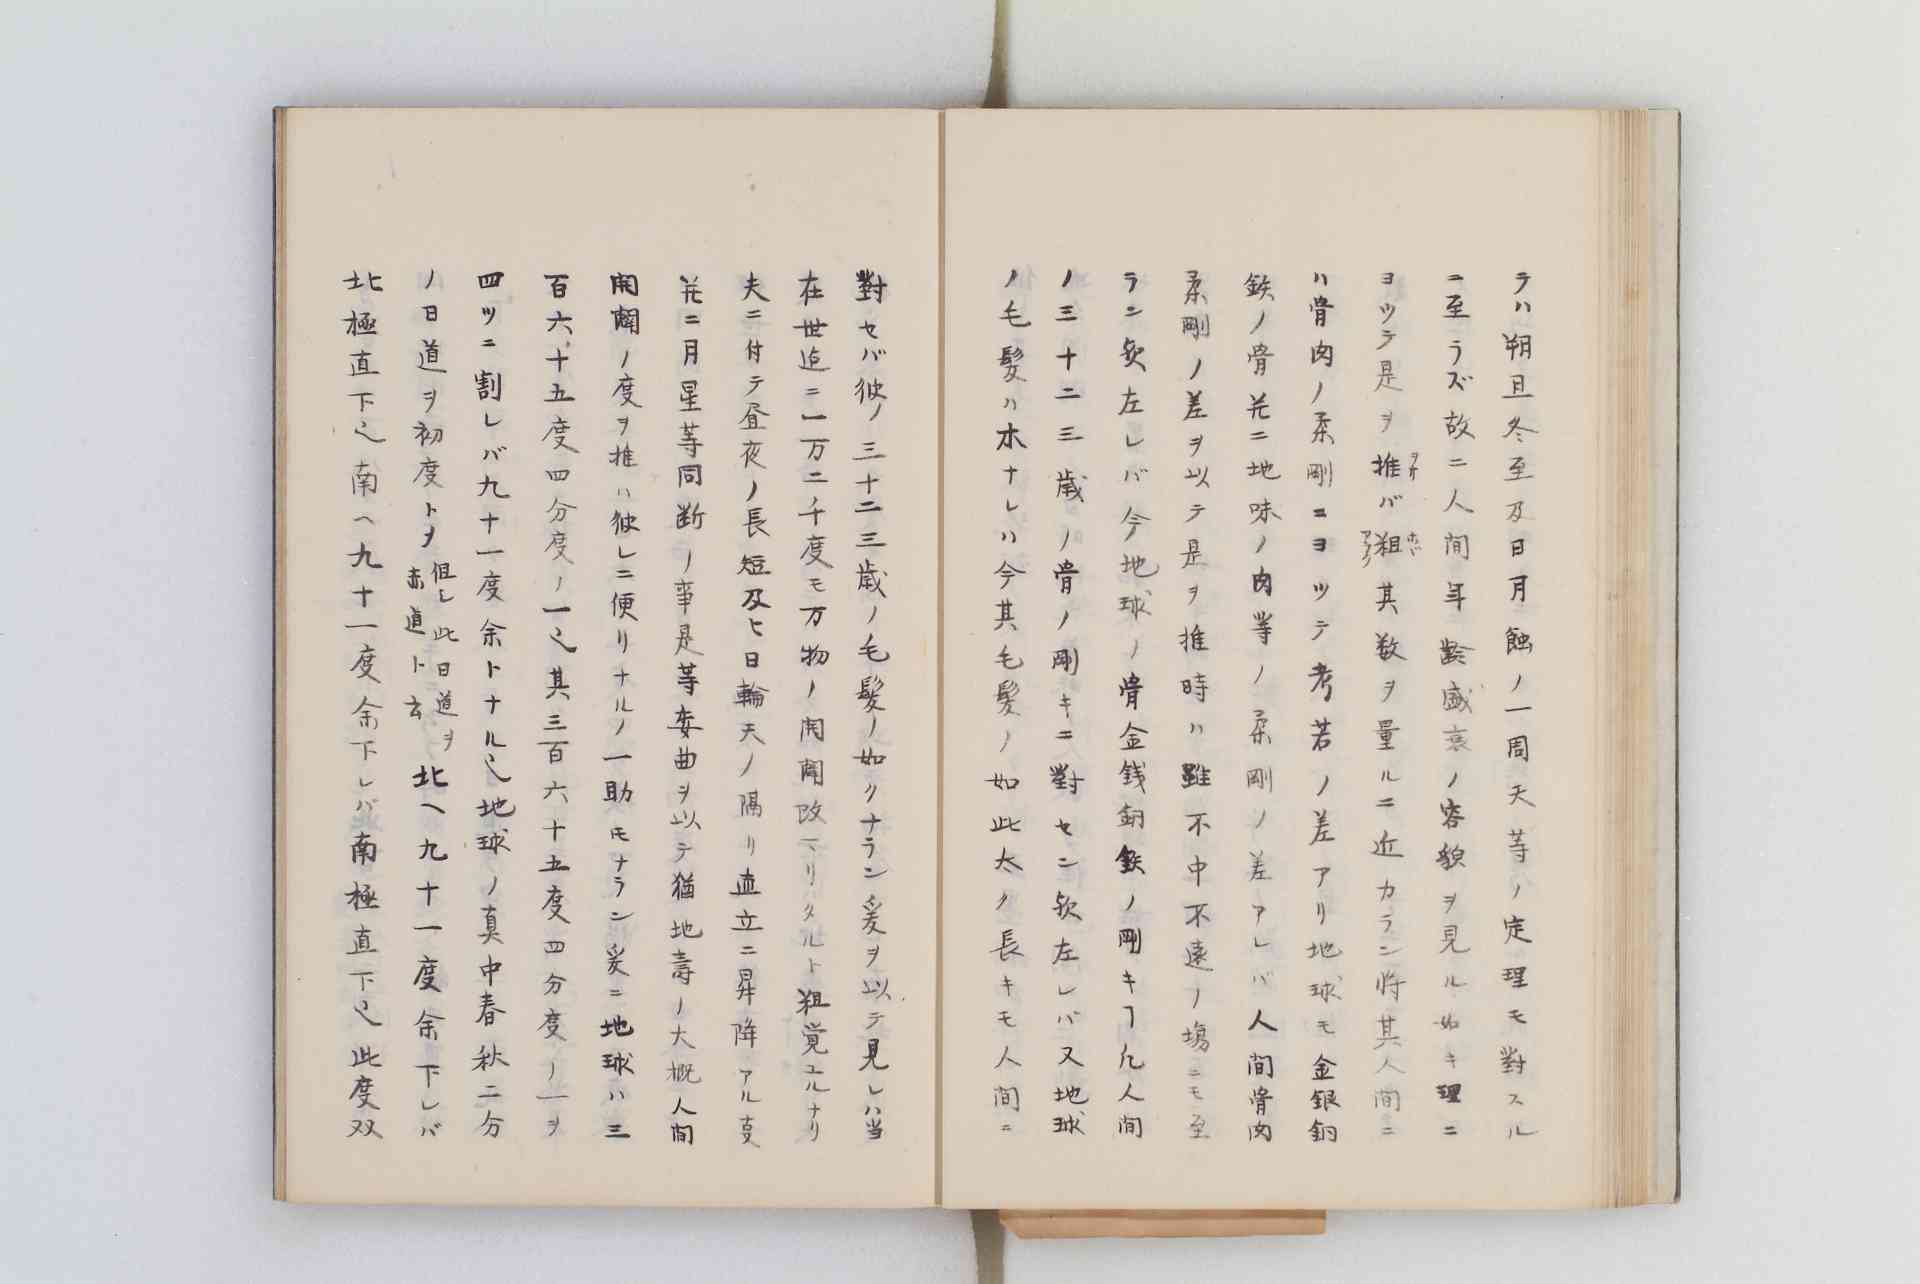 テハ朔旦冬至及日月蝕ノ一周天等ノ定理モ對スル
ニ至ラズ故ニ人間年齢盛衰ノ容貌ヲ見ル如キ理ニ
ヨツテ是ヲ推バ粗其数ヲ量ルニ近カラン将其人間ニ
ハ骨肉ノ柔剛ニヨツテ考若ノ差アリ地球モ金銀銅
鉄ノ骨并ニ地味ノ肉等ノ柔剛ノ差アレバ人間骨肉
柔剛ノ差ヲ以テ是ヲ推時ハ雖不中不遠ノ塲ニモ至
ラン欤左レバ今地球ノ骨金銭銅鉄ノ剛キヿ凡人間
ノ三十二三歳ノ骨ノ剛キニ對セン欤左レバ又地球
ノ毛髪ハ木ナレハ今其毛髪ノ如此太ク長キモ人間ニ
對セバ彼ノ三十二三歳ノ毛髪ノ如クナラン爰ヲ以テ見レハ当
在世迄ニ一万二千度モ万物ノ開闢改マリタルト粗覚ユルナリ
夫ニ付テ昼夜ノ長短及ヒ日輪天ノ隔リ直立ニ昇降アル㕝
并ニ月星等同断ノ事是等委曲ヲ以テ猶地壽ノ大概人間
開闢ノ度ヲ推ハ彼レニ便リナルノ一助モナラン爰ニ地球ハ三
百六十五度四分度ノ一也其三百六十五度四分度ノ一ヲ
四ツニ割レバ九十一度余トナル也地球ノ真中春秋二分
ノ日道ヲ初度トヲ 但シ此日道ヲ赤道ト云 北ヘ九十一度余下レバ
北極直下也南ヘ九十一度余下レバ南極直下也此度双